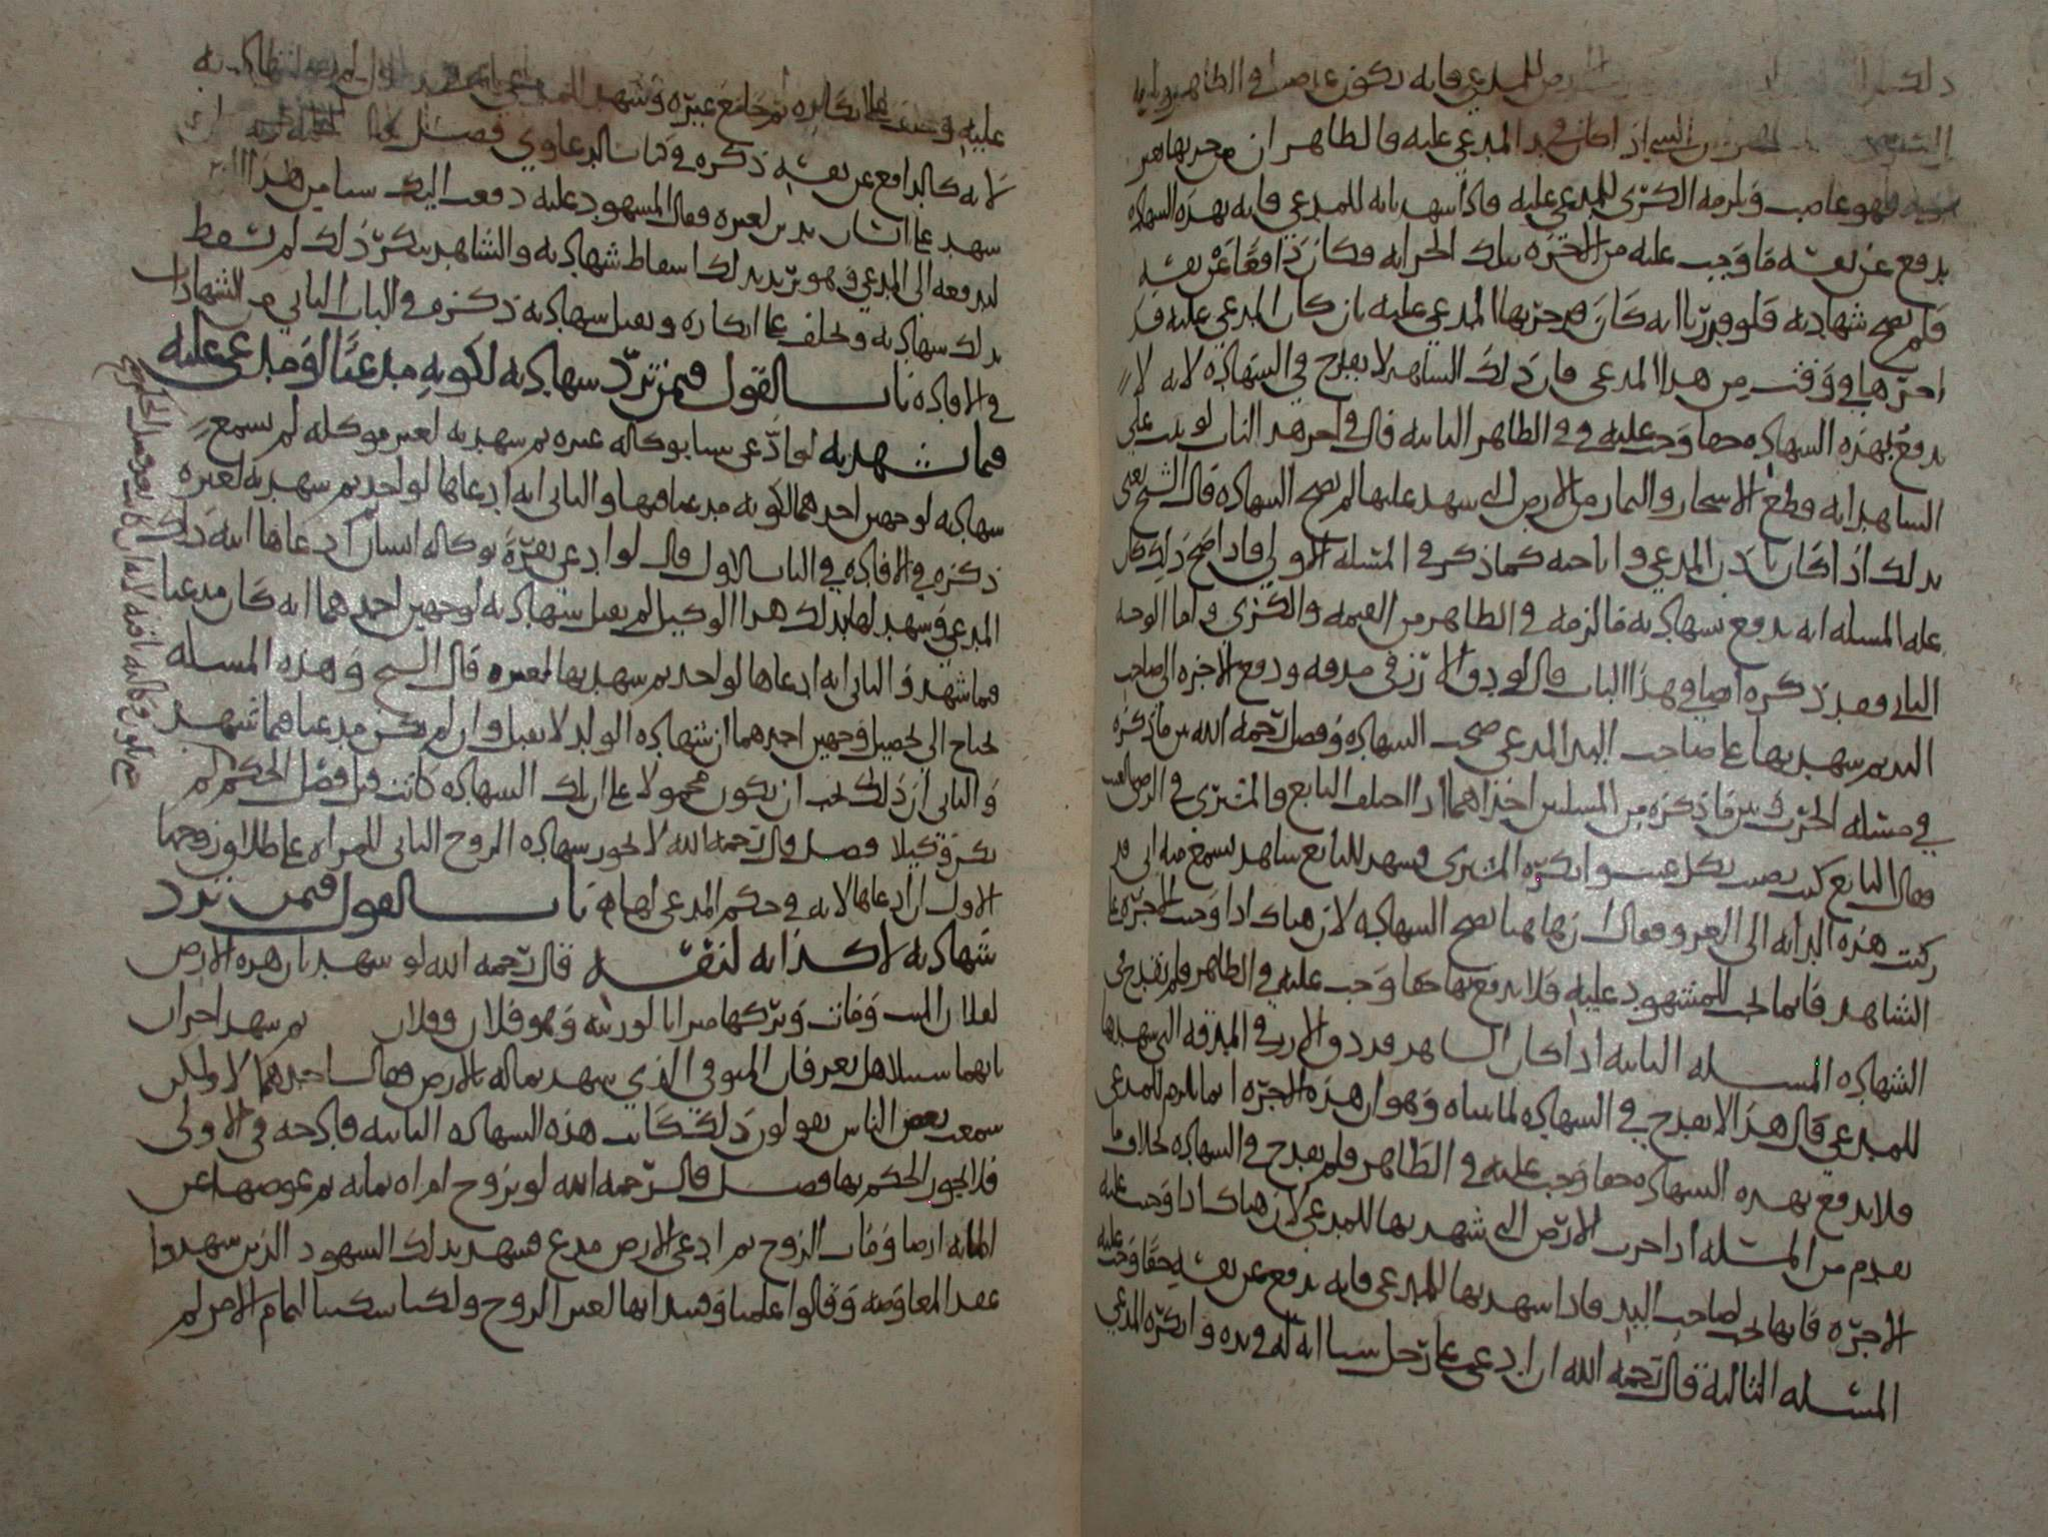 للمدعي فانه يكون غاصبا في الظاهر
اذا كان في يد المدعى عليه فالظاهر ان من حربها
فهو غاصب ويلزمه الكرى للمدعى عليه فاذا شهد بانه للمدعي فانه بهذه الشهادة
يدفع عن نفسه ما وجب عليه من الاجرة بتلك الحراثة فكان دافعا عن نفسه
فلم تصح شهادته فلو قدرنا انه كان قد حربها المدعى عليه بان كان المدعى عليه قد
اجرها في وقت من هذا المدعي فان ذلك الشاهد لا يقدح في الشهادة لانه لا
يدفع بهذه الشهادة حقا وجب عليه في الظاهر الثانية قال في اخر هذا الباب لو ثبت على
الشاهد انه قطع الاشجار والثمار من الارض التي شهد عليها لم تصح الشهادة قال الشيخ يعني
بذلك اذا كان باذن المدعي واباحته كما ذكر في المسئلة الاولى فاذا صح ذلك
علة المسئلة انه يدفع بشهادته ما لزمه في الظاهر من القيمة والكرى واما الوجه
الثاني فقد ذكره ايضا في هذا الباب قال لو دق الارز في مدقة ودفع الاجرة الى صاحب
اليد ثم شهد بها على صاحب اليد المدعي صحت الشهادة وفصل رحمه الله بين ما ذكره
في مسئلة الحرث وبين ما ذكره من المسئلتين احداهما اذا اختلف البائع والمشتري في الرضى بالعيب
فقال البائع كنت رضيت بكل عيب وانكره المشتري فشهد للبائع شاهد يسمع منه اني قد
ركبت هذه الدابة الى العمرو فقال ان هاهنا تصح الشهادة لان هناك اذا وجبت الاجرة على
الشاهد فانما تجب للمشهود عليه فلا يدفع بها حقا وجب عليه في الظاهر فلم تقدح في
الشهادة المسئلة الثانية اذا كان الشاهد قد دق الارز في المدقة التي شهد بها
للمدعي قال هذا لا يقدح في الشهادة لما بيناه وهو ان هذه الاجرة انما تلزم للمدعي
فلا يدفع بهذه الشهادة حقا وجب عليه في الظاهر فلم يقدح في الشهادة بخلاف ما
تقدم من المسئلة اذا حرث الارض التي شهد بها للمدعي لان هناك اذا وجبت عليه
الاجرة فانها تجب لصاحب اليد فاذا شهد بها للمدعي فانه يدفع عن نفسه حقا وجب عليه
المسئلة الثالثة قال رحمه الله ان ادعى على رجل شيئا انه له في يده وانكره المدعى
عليه وحلف على انكاره ثم خاصم غيره وشهد للمدعي
لانه كالدافع عن نفسه ذكره في كتاب الدعاوي فصل
شهد على انسان بدين لغيره فقال المشهود عليه دفعت اليك شيئا من هذا
لتدفعه الى المدعي فهو يريد بذلك اسقاط شهادته والشاهد ينكر ذلك لم تسقط
بذلك شهادته ويحلف على انكاره وتقبل شهادته ذكره في الباب الثاني من الشهادات
في الافادة باب القول فيمن ترد شهادته لكونه مدعيا او مدعى عليه
فيما شهد به لو ادعى شيئا بوكالة غيره ثم شهد به لغير موكله لم تسمع
شهادته لوجهين احدهما لكونه مدعيا فيها والثاني انه ادعاها لواحد ثم شهد به لغيره
ذكره في الافادة في الباب الاول قال لو ادعى بقرة بوكالة انسان ادعاها ابنه ذلك
المدعي وشهد لها بذلك هذا الوكيل لم تقبل شهادته لوجهين احدهما انه كان مدعيا
فيما شهد والثاني انه ادعاها لواحد ثم شهد بها لغيره قال الشيخ وهذه المسئلة
تحتاج الى تحصيل وجهين احدهما ان شهادة الولد لا تقبل وان لم يكن مدعيا فيما شهد
والثاني ان ذلك يجب ان يكون محمولا على ان تلك الشهادة كانت قبل فصل الحكم لم
يكن وكيلا فصل قال رحمه الله لا تجوز شهادة الزوج الثاني للمراة على طلاق زوجها
الاول ان ادعاها لانه في حكم المدعي لها باب القول فيمن ترد
شهادته لاكذابه لنفسه قال رحمه الله لو شهد بان هذه الارض
لفلان الميت ومات وتركها ميراثا لورثته وهو فلان وفلان ثم شهد اخران
بانهما سئلا هل يعرفان المتوفى الذي شهد بماله بالارض فقال احدهما لا ولكن
سمعت بعض الناس يقولون ذلك كانت هذه الشهادة الثانية قادحة في الاولى
فلا يجوز الحكم بها فصل قال رحمه الله لو تزوج امراة بمائة ثم عوضها عن
المائة ارضا ومات الزوج ثم ادعى الارض مدع فشهد بذلك الشهود الذين شهدوا
عقد المعاوضة وقالوا علمنا وقتئذ انها لغير الزوج ولكنا سكتنا لتمام الامر لم